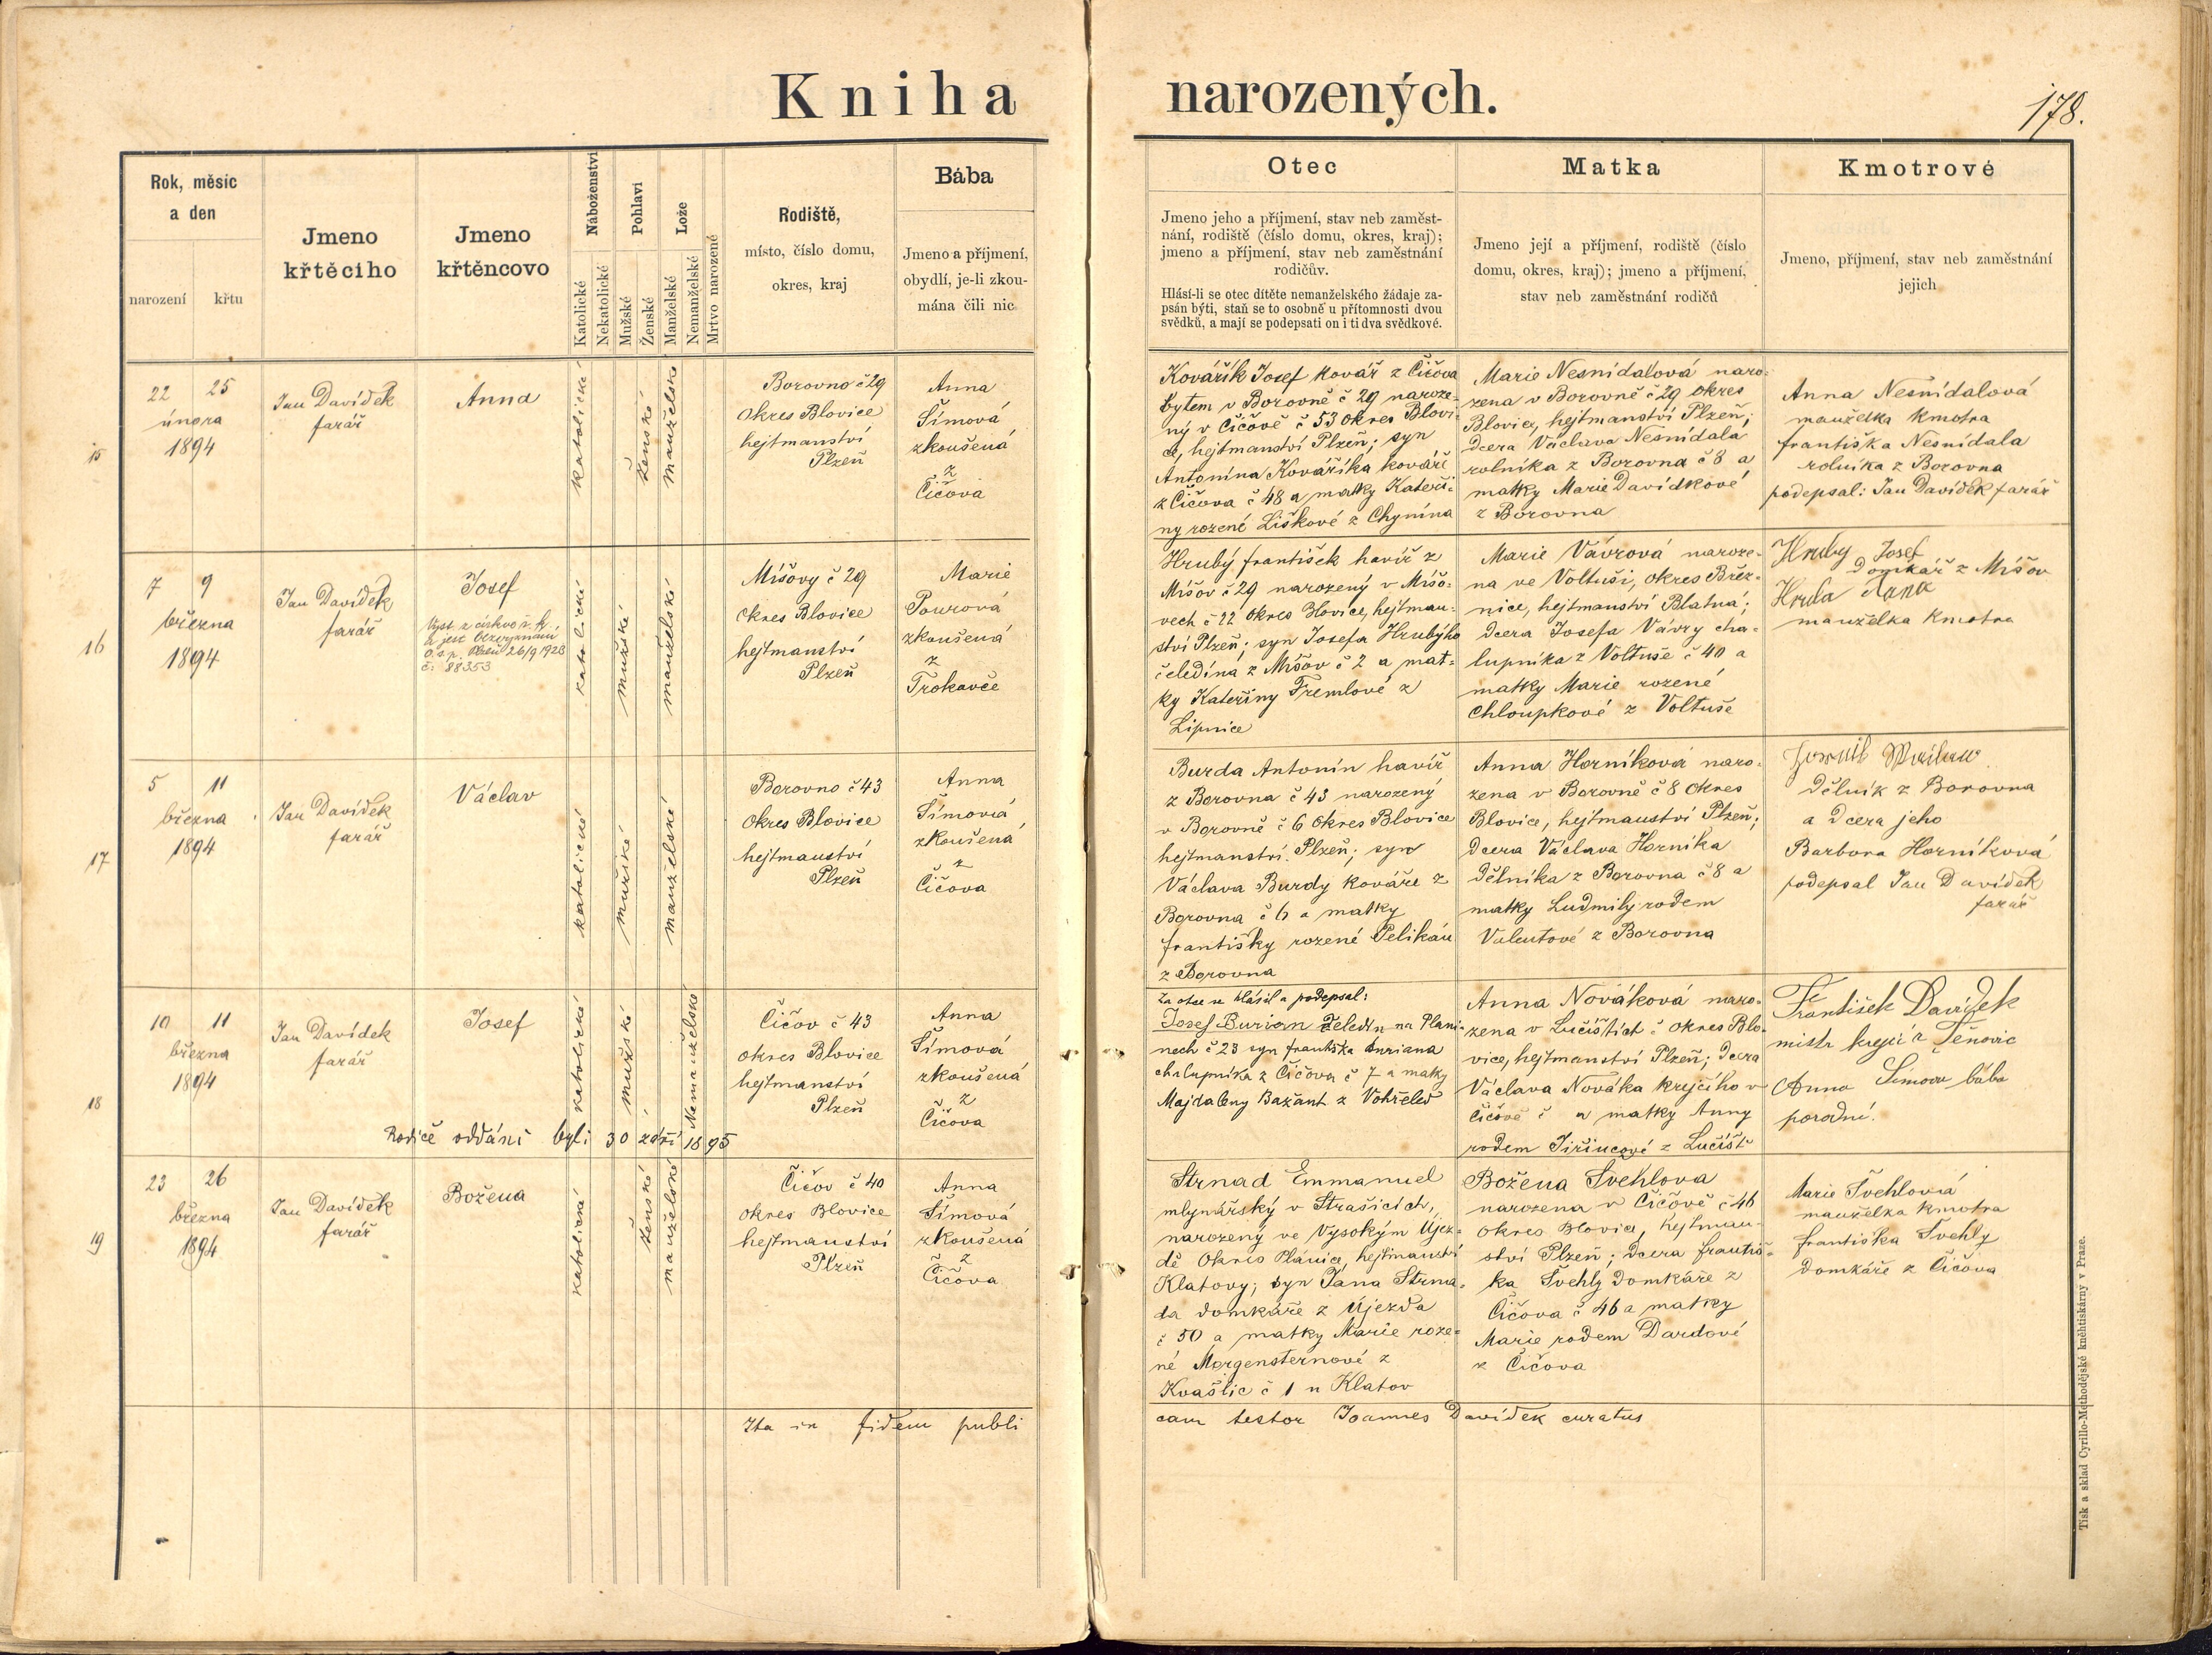 Kniha narozených.
178.
Rok, měsíc
a den
narození
křtu
Jmeno
křtěcího
Jmeno
křtěncovo
Náboženství
Katolické
Nekatolické
Pohlaví
Mužské
Ženské
Lože
Manželské
Nemanželské
Mrtvo narozené
Rodiště,
místo, číslo domu,
okres, kraj
Bába
Jmeno a příjmení,
obydlí, je-li zkou-
mána čili nic
Otec
Jmeno jeho a příjmení, stav neb zaměst-
nání, rodiště (číslo domu, okres, kraj);
jmeno a příjmení, stav neb zaměstnání
rodičův.
Hlásí-li se otec dítěte nemanželského žádaje za-
psán býti, staň se to osobně u přítomnosti dvou
svědků, a mají se podepsati on i ti dva svědkové.
Matka
Jmeno její a příjmení, rodiště (číslo
domu, okres, kraj); jmeno a příjmení,
stav neb zaměstnání rodičů
Kmotrové
Jmeno, příjmení, stav neb zaměstnání
jejich
15
22 25
února
1894
Jan Davídek
farář
Anna
katolické
ženské
manželské
Borovno č 29
okres Blovice
hejtmanství
Plzeň
Anna
Šímová
zkoušená
z
Čičova
Kovářík Josef kovář z Čičova
bytem v Borovně č 29 naroze-
ný v Čičově č 53 okres Blovi-
ce, hejtmanství Plzeň; syn
Antonína Kovaříka kováře
z Čičova č 48 a matky Kateři-
ny rozené Liškové z Chynína
Marie Nesnídalová naro-
zena v Borovně č 29 okres
Blovice, hejtmanství Plzeň;
dcera Václava Nesnídala
rolníka z Borovna č 8 a
matky Marie Davídkové
z Borovna
Anna Nesnídalová
manželka kmotra
františka Nesnídala
rolníka z Borovna
podepsal: Jan Davídek farář
16
7 9
března
1894
Jan Davídek
farář
Josef
Vyst. z církve ř. k.
a jest bezvyznání
O. s. p. Plzeň 26/9 1923
č: 88353
katolické
mužské
manželské
Míšovy č 29
okres Blovice
hejtmanství
Plzeň
Marie
Pourová
zkoušená
z
Trokavče
Hrubý františek havíř z
Míšov č 29 narozený v Míšo-
vech č 22 okres Blovice, hejtman-
ství Plzeň; syn Josefa Hrubýho
čeledína z Míšov č 2 a mat-
ky Kateřiny Fremlové z
Lipnice
Marie Vávrová naroze-
na ve Voltuši, okres Břez-
nice, hejtmanství Blatná;
dcera Josefa Vávry cha-
lupníka z Voltuše č 40 a
matky Marie rozené
Chloupkové z Voltuše
Hruby Josef
Domkář z Míšov
manželka kmotra
17
5 11
března
1894
Jan Davídek
farář
Václav
katolické
mužské
manželské
Borovno č 43
okres Blovice
hejtmanství
Plzeň
Anna
Šímová
zkoušená
z
Čičova
Burda Antonín havíř
z Borovna č 43 narozený
v Borovně č 6 okres Blovice
hejtmanství Plzeň; syn
Václava Burdy kováře z
Borovna č 6 a matky
františky rozené Pelikán
z Borovna
Anna Horníková naro-
zena v Borovně č 8 okres
Blovice, hejtmanství Plzeň;
dcera Václava Horníka
dělníka z Borovna č 8 a
matky Ludmily rodem
Valentové z Borovna
dělník z Borovna
a dcera jeho
Barbora Horníková
podepsal Jan Davídek
farář
18
10 11
března
1894
Jan Davídek
farář
Josef
katolické
mužské
Nemanželské
Čičov č 43
okres Blovice
hejtmanství
Plzeň
Anna
Šímová
zkoušená
z
Čičova
Rodiče oddáni byli 30 září 1895
Za otce se hlásil a podepsal:
Josef Burian čeledín na Plani-
nech č 23 syn františka Buriana
chalupníka z Čičova č 7 a matky
Majdaleny Bažant z Vohřeled
Anna Nováková naro-
zena v Lučištích č okres Blo-
vice, hejtmanství Plzeň; dcera
Václava Nováka krejčího v
Čičově č a matky Anny
rodem Jiřincové z Lučišť
František Davídek
mistr krejčí z Ťěnovic
Anna Šímova bába
porodní.
19
23 26
března
1894
Jan Davídek
farář
Božena
katolické
ženské
manželské
Čičov č 40
okres Blovice
hejtmanství
Plzeň
Anna
Šímová
zkoušená
z
Čičova
Strnad Emmanuel
mlynářský v Strašicích,
narozený ve Vysokým Újez-
dě okres Plánice, hejtmanství
Klatovy; syn Jana Strna-
da domkáře z Újezda
č 50 a matky Marie roze-
né Morgensternové z
Kvašlic č 1 u Klatov
Božena Švehlova
narozena v Čičově č 46
okres Blovice, hejtman-
ství Plzeň; dcera františ-
ka Švehly domkáře z
Čičova č 46 a matky
Marie rodem Dardové
z Čičova
Marie Švehlová
manželka kmotra
františka Švehly
domkáře z Čičova
Ita in fidem publi
cam testor Joannes Davídek curatus
Tisk a sklad Cyrillo-Methodějské kněhtiskárny v Praze.